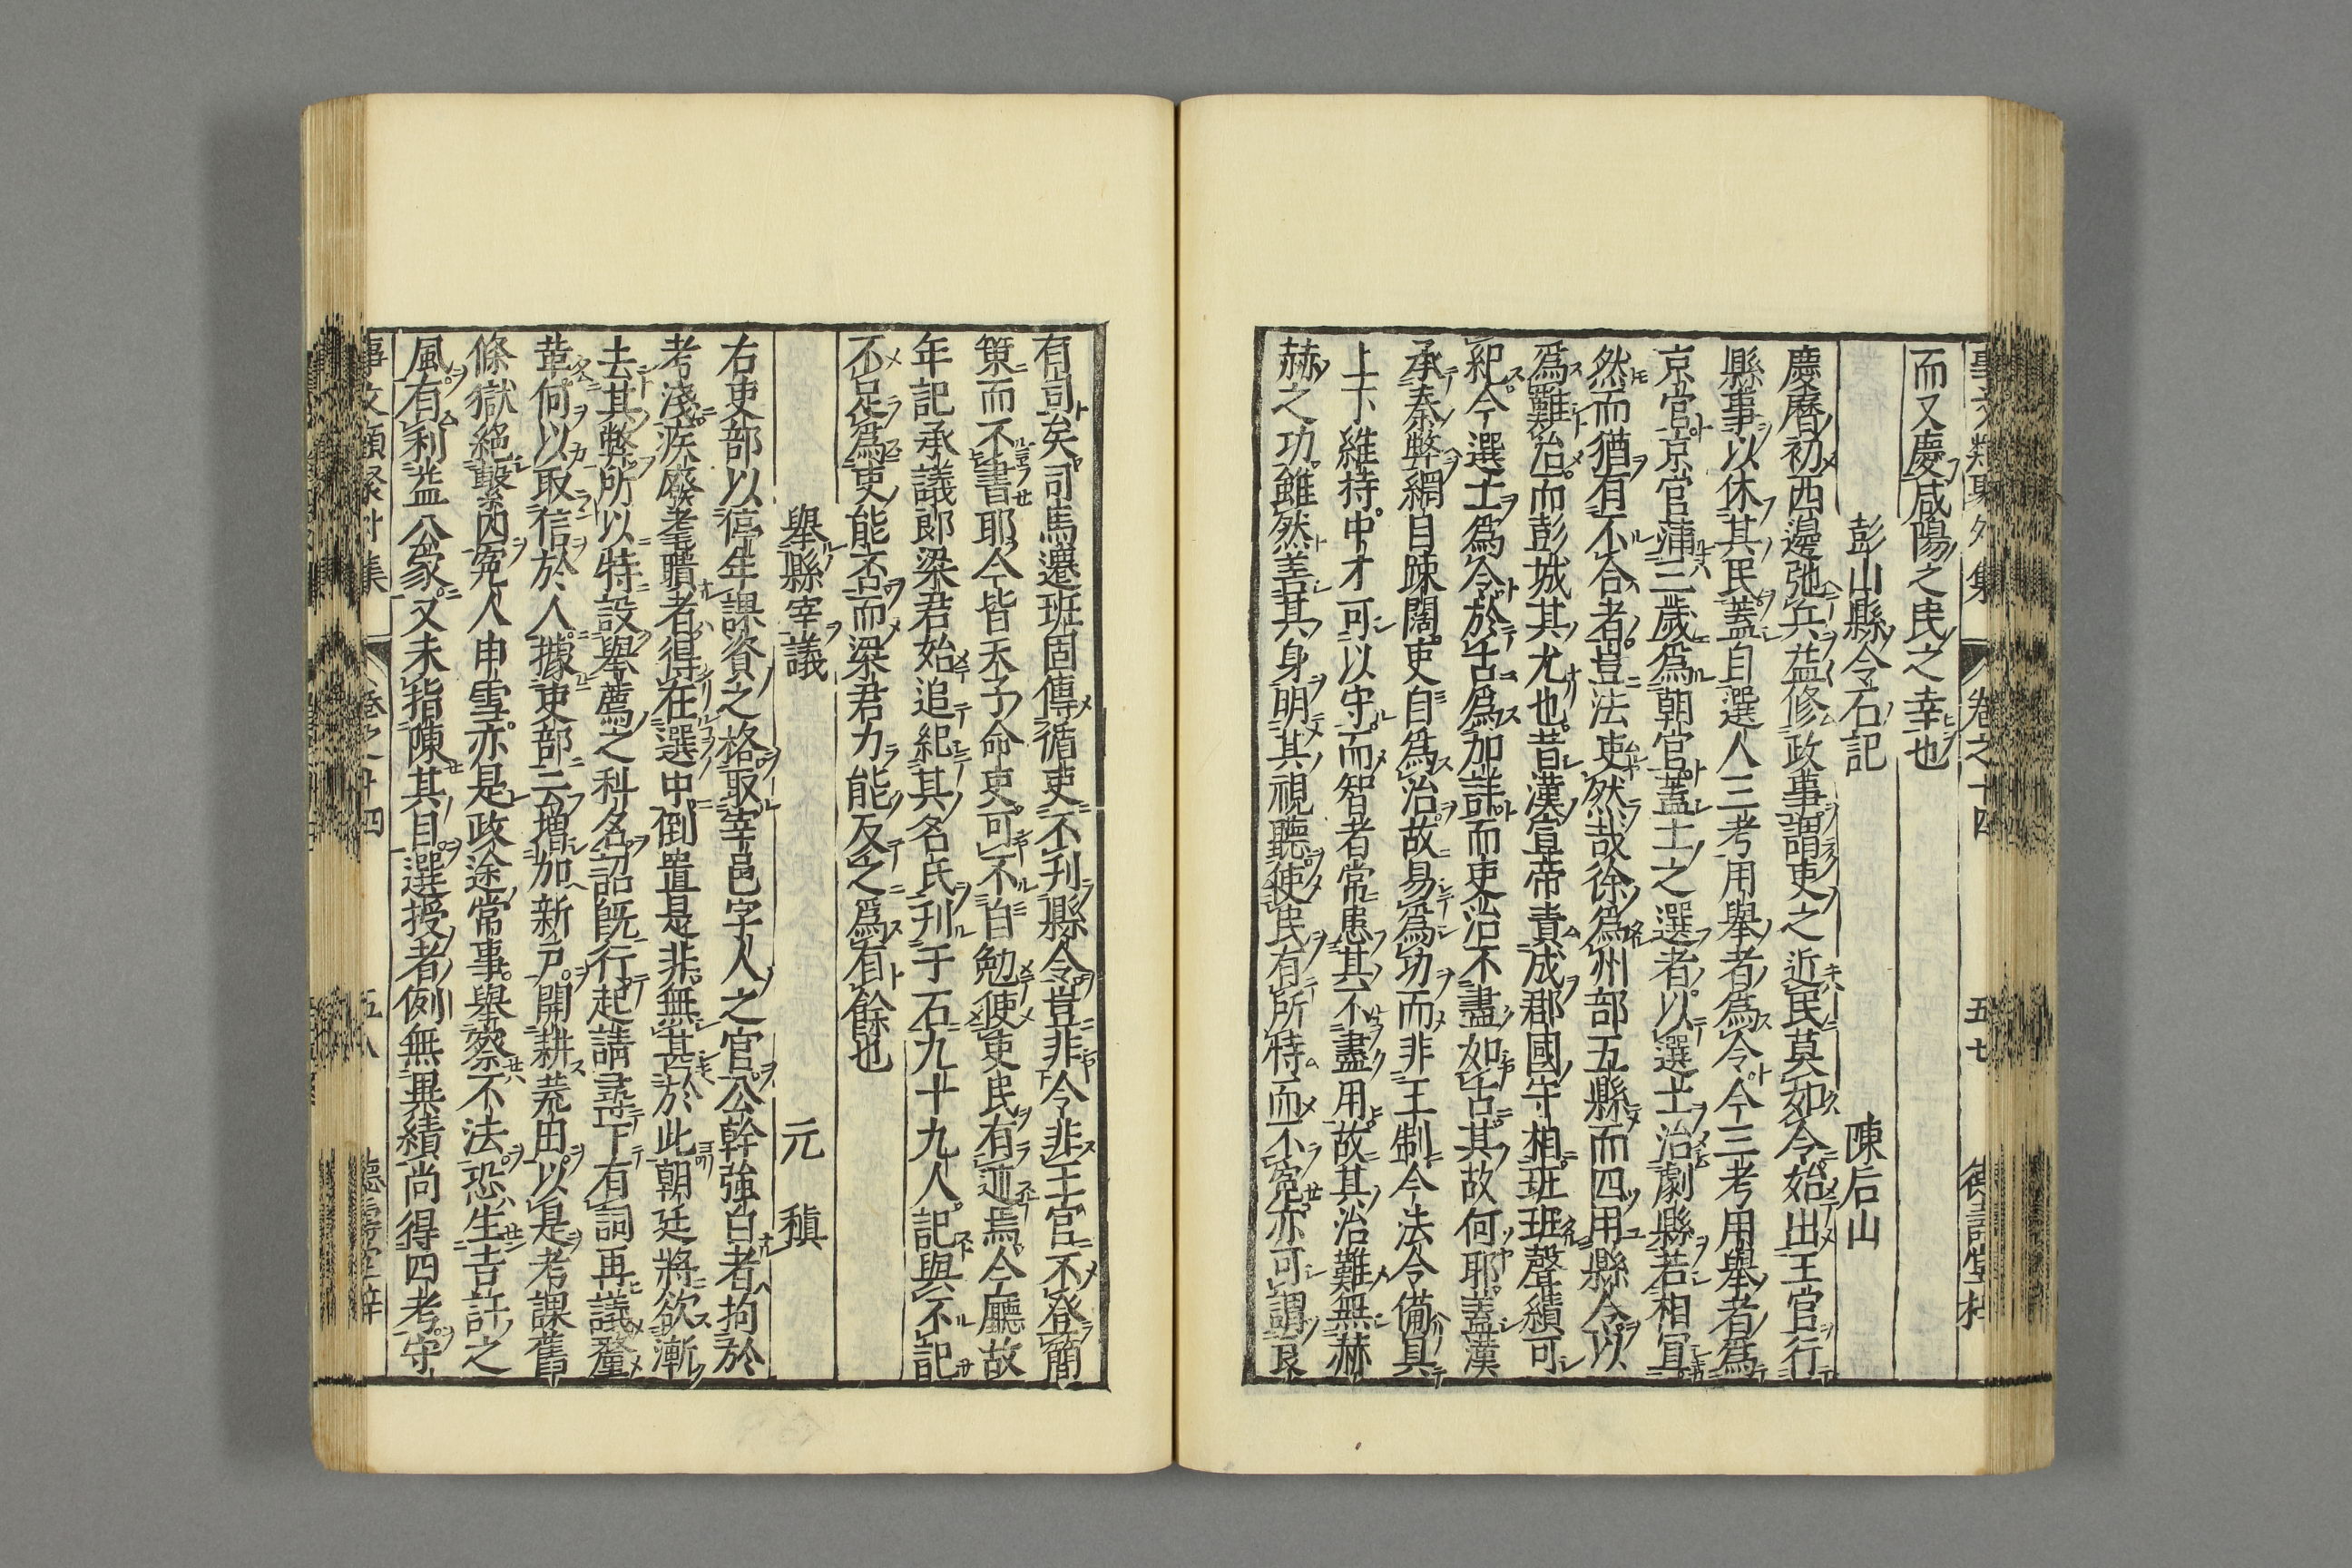 事文類聚外集 卷之十四 五十七 德壽堂梓
而又慶咸陽之民之幸也
彭山縣令石記 陳后山
慶曆初西邊弛兵益修政事謂吏之近民莫如令始出王官行
縣事以休其民蓋自選人三考用舉者爲令令三考用舉者爲
京官京官蒲三歲爲朝官蓋士之選者以選士治劇縣若相宜
然而猶有不合者豈法吏然哉徐爲州部五縣而四用縣令以
爲難治而彭城其尤也昔漢宣帝責成郡國守相班班聲績可
紀今選士爲令於古爲加詳而吏治不盡如古其故何耶蓋漢
承秦弊網目踈闊吏自爲治故易爲功而非王制今法令備具
上下維持中才可以守而智者常患其不盡用故其治難無赫
赫之功雖然善其身明其視聽使民有所恃而不冤亦可謂良
有司矣司馬遷班固傳循吏不刊縣令豈非令非王官不登簡
策而不書耶今皆禾予命吏可不自勉使吏民有述焉今廳故
年記承議郎梁君始追紀其名氏刊于石九十九人記與不記
不足爲吏能否而梁君力能及之爲有餘也
舉縣宰議 元稹
右吏部以停年課資之格取宰邑字人之官公幹強白者拘於
考淺疾廢耄聵者得在選中倒置是非無甚於此朝廷將欲漸
去其弊所以特設舉薦之科名詔旣行起請尋下有詞再議釐
革何以取信於人據吏部云增加新戸開耕荒田以是考課舊
條獄絕繫囚冤人申雪亦是政途常事舉察不法恐生吉訐之
風有利益公家又未指陳其目選授者例無異績尚得四考守
事文類聚外集 卷之十四 五十八 德壽堂梓